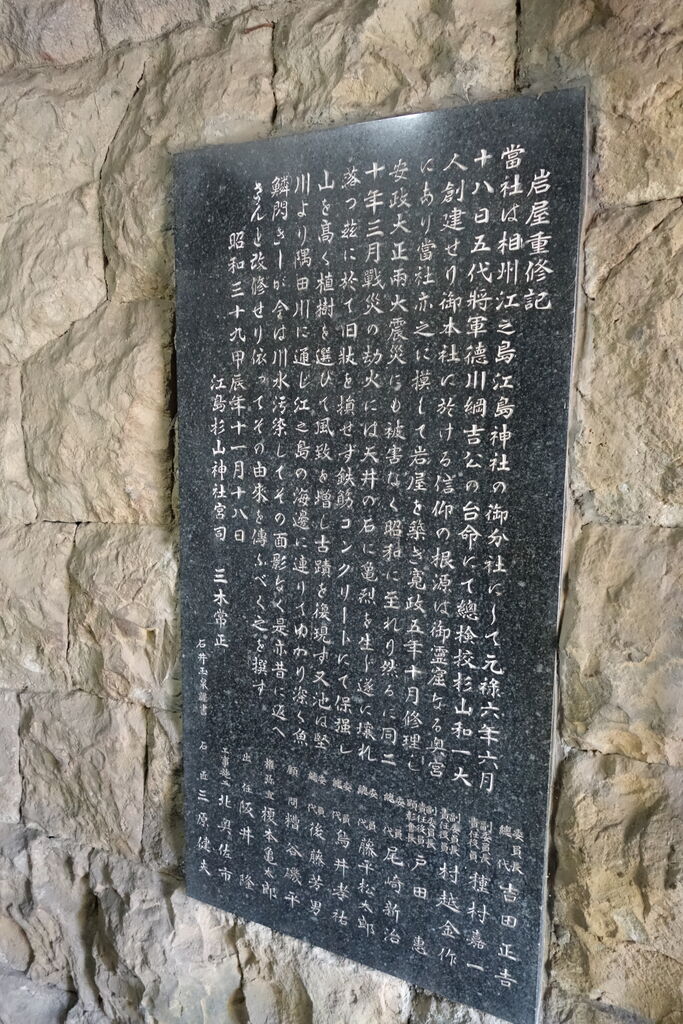 岩屋重修記
當社は相州江之島江島神社の御分社にして元禄六年六月
十八日五代將軍德川綱吉公の台命にて總檢校杉山和一大
人創建せり御本社に於ける信仰の根源は御靈窟なる奥宮
にあり當社亦之に摸して岩屋を築き寛政五年十月修理し
安政大正両大震災にも被害なく昭和に至れり然るに同二
十年三月戰災の劫火には天井の石に亀烈を生じ遂に壊れ
落つ玆に於て旧狀を損せず鉄筋コンクリートにて保强し
山を髙く植樹を選びて風致を増し古蹟を復現す又池は堅
川より隅田川に通じ江之島の海邊に連りてゆかり深く魚
鱗閃きしが今は川水汚染してその面影なく是亦昔に返へ
さんと改修せり依ってその由來を傳ふべく之を撰す
昭和三十九甲辰年十一月十八日
江島杉山神社宮司 三木常正
委員長 總代 吉田正吉
副委員長 責任役員 種村嘉一
副委員長 責任役員 村越金作
副委員長 責任役員 顕彰會長 戸田 惠
委員 總代 尾崎新治
委員 總代 勝平松太郎
委員 總代 鳥井孝祐
委員 總代 後藤芳男
顧問 糟谷磯平
権祢宜 榎本亀太郎
出仕 阪井 隆
工事施工 北奥佐市
石匠 三原健夫